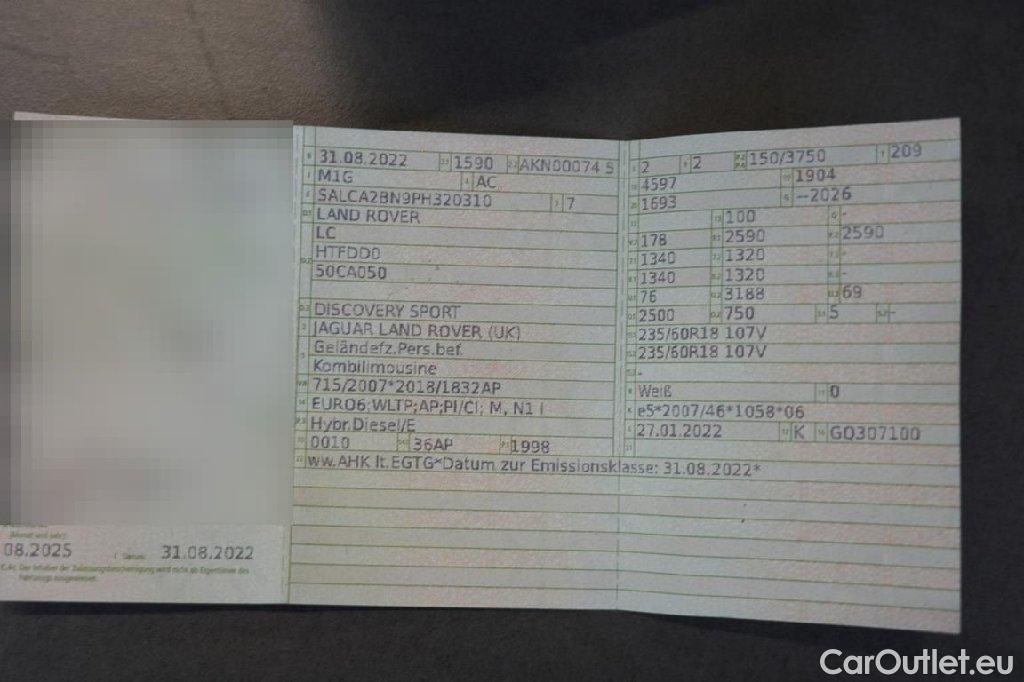 31.08.2022 1590 AKN00074 5
M1G AC
SALCA2BN9PH320310 7
LAND ROVER
LC
HTFDD0
50CA050
DISCOVERY SPORT
JAGUAR LAND ROVER (UK)
Geländefz.Pers.bef.
Kombilimousine
715/2007*2018/1832AP
EURO6;WLTP;AP;PI/CI; M, N1 I
Hybr.Diesel/E
0010 36AP 1998
ww.AHK lt.EGTG*Datum zur Emissionsklasse: 31.08.2022*
2 2 150/3750 209
4597 1904
1693 --2026
100 -
178 2590 2590
1340 1320 -
1340 1320 -
76 3188 69
2500 750 5 -
235/60R18 107V
235/60R18 107V
-
Weiß 0
e5*2007/46*1058*06
27.01.2022 K GO307100
(Monat und Jahr)
08.2025 Datum: 31.08.2022
Der Inhaber der Zulassungsbescheinigung wird nicht als Eigentümer des
Fahrzeugs ausgewiesen.
CarOutlet.eu